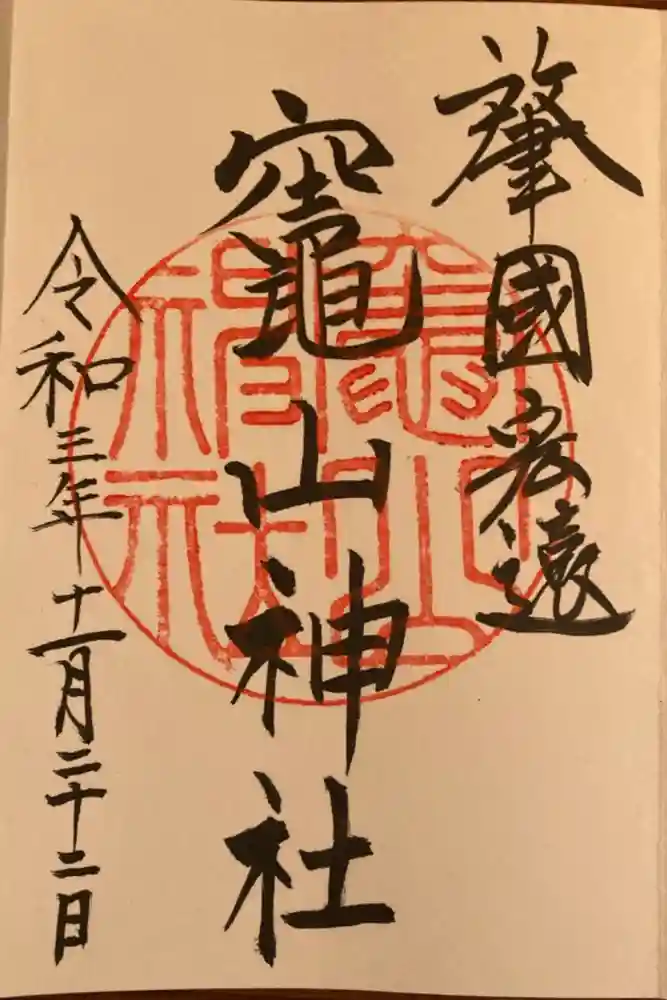 肇國宏遠
竈山神社
令和三年十一月二十二日
竈山神社